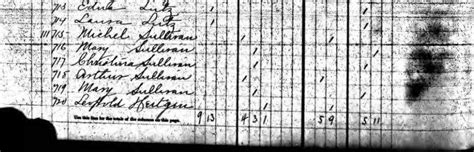 713 Edith Litz 1
714 Laura Litz 1
111 715 Michel Sullivan 1 1
716 Mary Sullivan 1 1
717 Christina Sullivan 1
718 Arthur Sullivan 1 1
719 Mary Sullivan 1
720 Leopold 1 1
Use this line for the totals of the columns on this page. 9 13 4 3 1 5 9 5 11